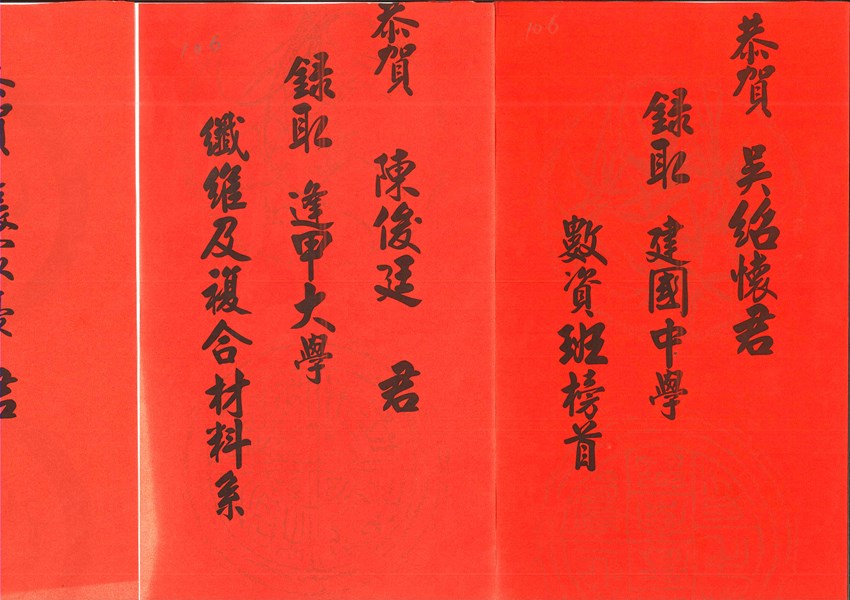 恭賀 吳紹懷君
錄取 建國中學
數資班榜首
106
恭賀 陳俊廷 君
錄取 逢甲大學
纖維及複合材料系
106
恭賀
君